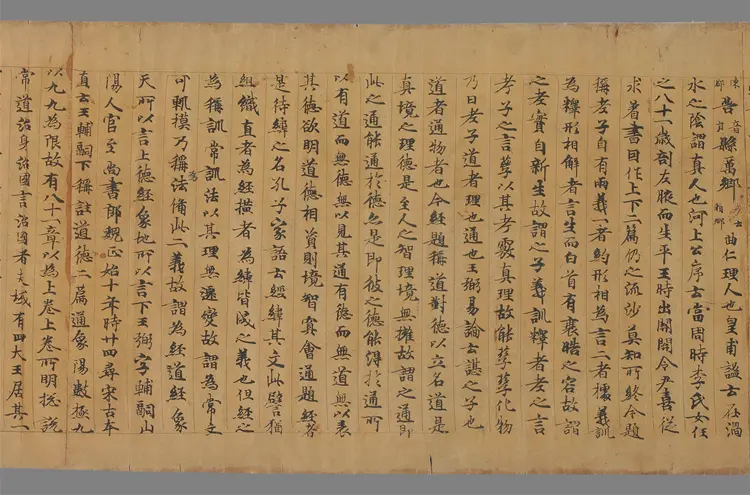 陳郡苦縣萬鄉曲仁理人也皇甫謐云在渦
水之陰謂真人也河上公序云當周時李氏女任
之八十一歲剖左腋而生平王時出關關令尹喜從
求著書因作上下二篇仍之流沙莫知所終今題
稱老子自有兩義一者約形相為言二者據義訓
為釋形相解者言生而白首有裹晧之容故謂
之老實自新生故謂之子義訓釋者老之言
考子之言孳以其考覈真理故能孳孳化物
乃曰老子道者理也通也王弼易論云諶之子也
道者通物者也今經題稱道對德以立名道是
真境之理德是至人之智理境無擁故謂之通即
此之通能通於德亦是即彼之德能得於通所
以有道而無德無以見其通有德而無道無以表
其德欲明道德相資則境智冥會通題經者
是待緯之名孔子家語云經緯其文此譬猶
組織直者為經橫者為緯皆成之義也但經之
為稱訓常訓法以其理無遷變故謂為常文
可軌摸乃稱為法備此二義故謂為經道經象
天所以言上德經象地所以言下王弼字輔嗣山
陽人官至尚書郎魏正始十年時廿四尋宋古本
直云王輔嗣下稱註道德二篇通象陽數極九
以九九為限故有八十一章以為上卷上卷所明總說
常道治身治國言治國者夫域有四大王居其一